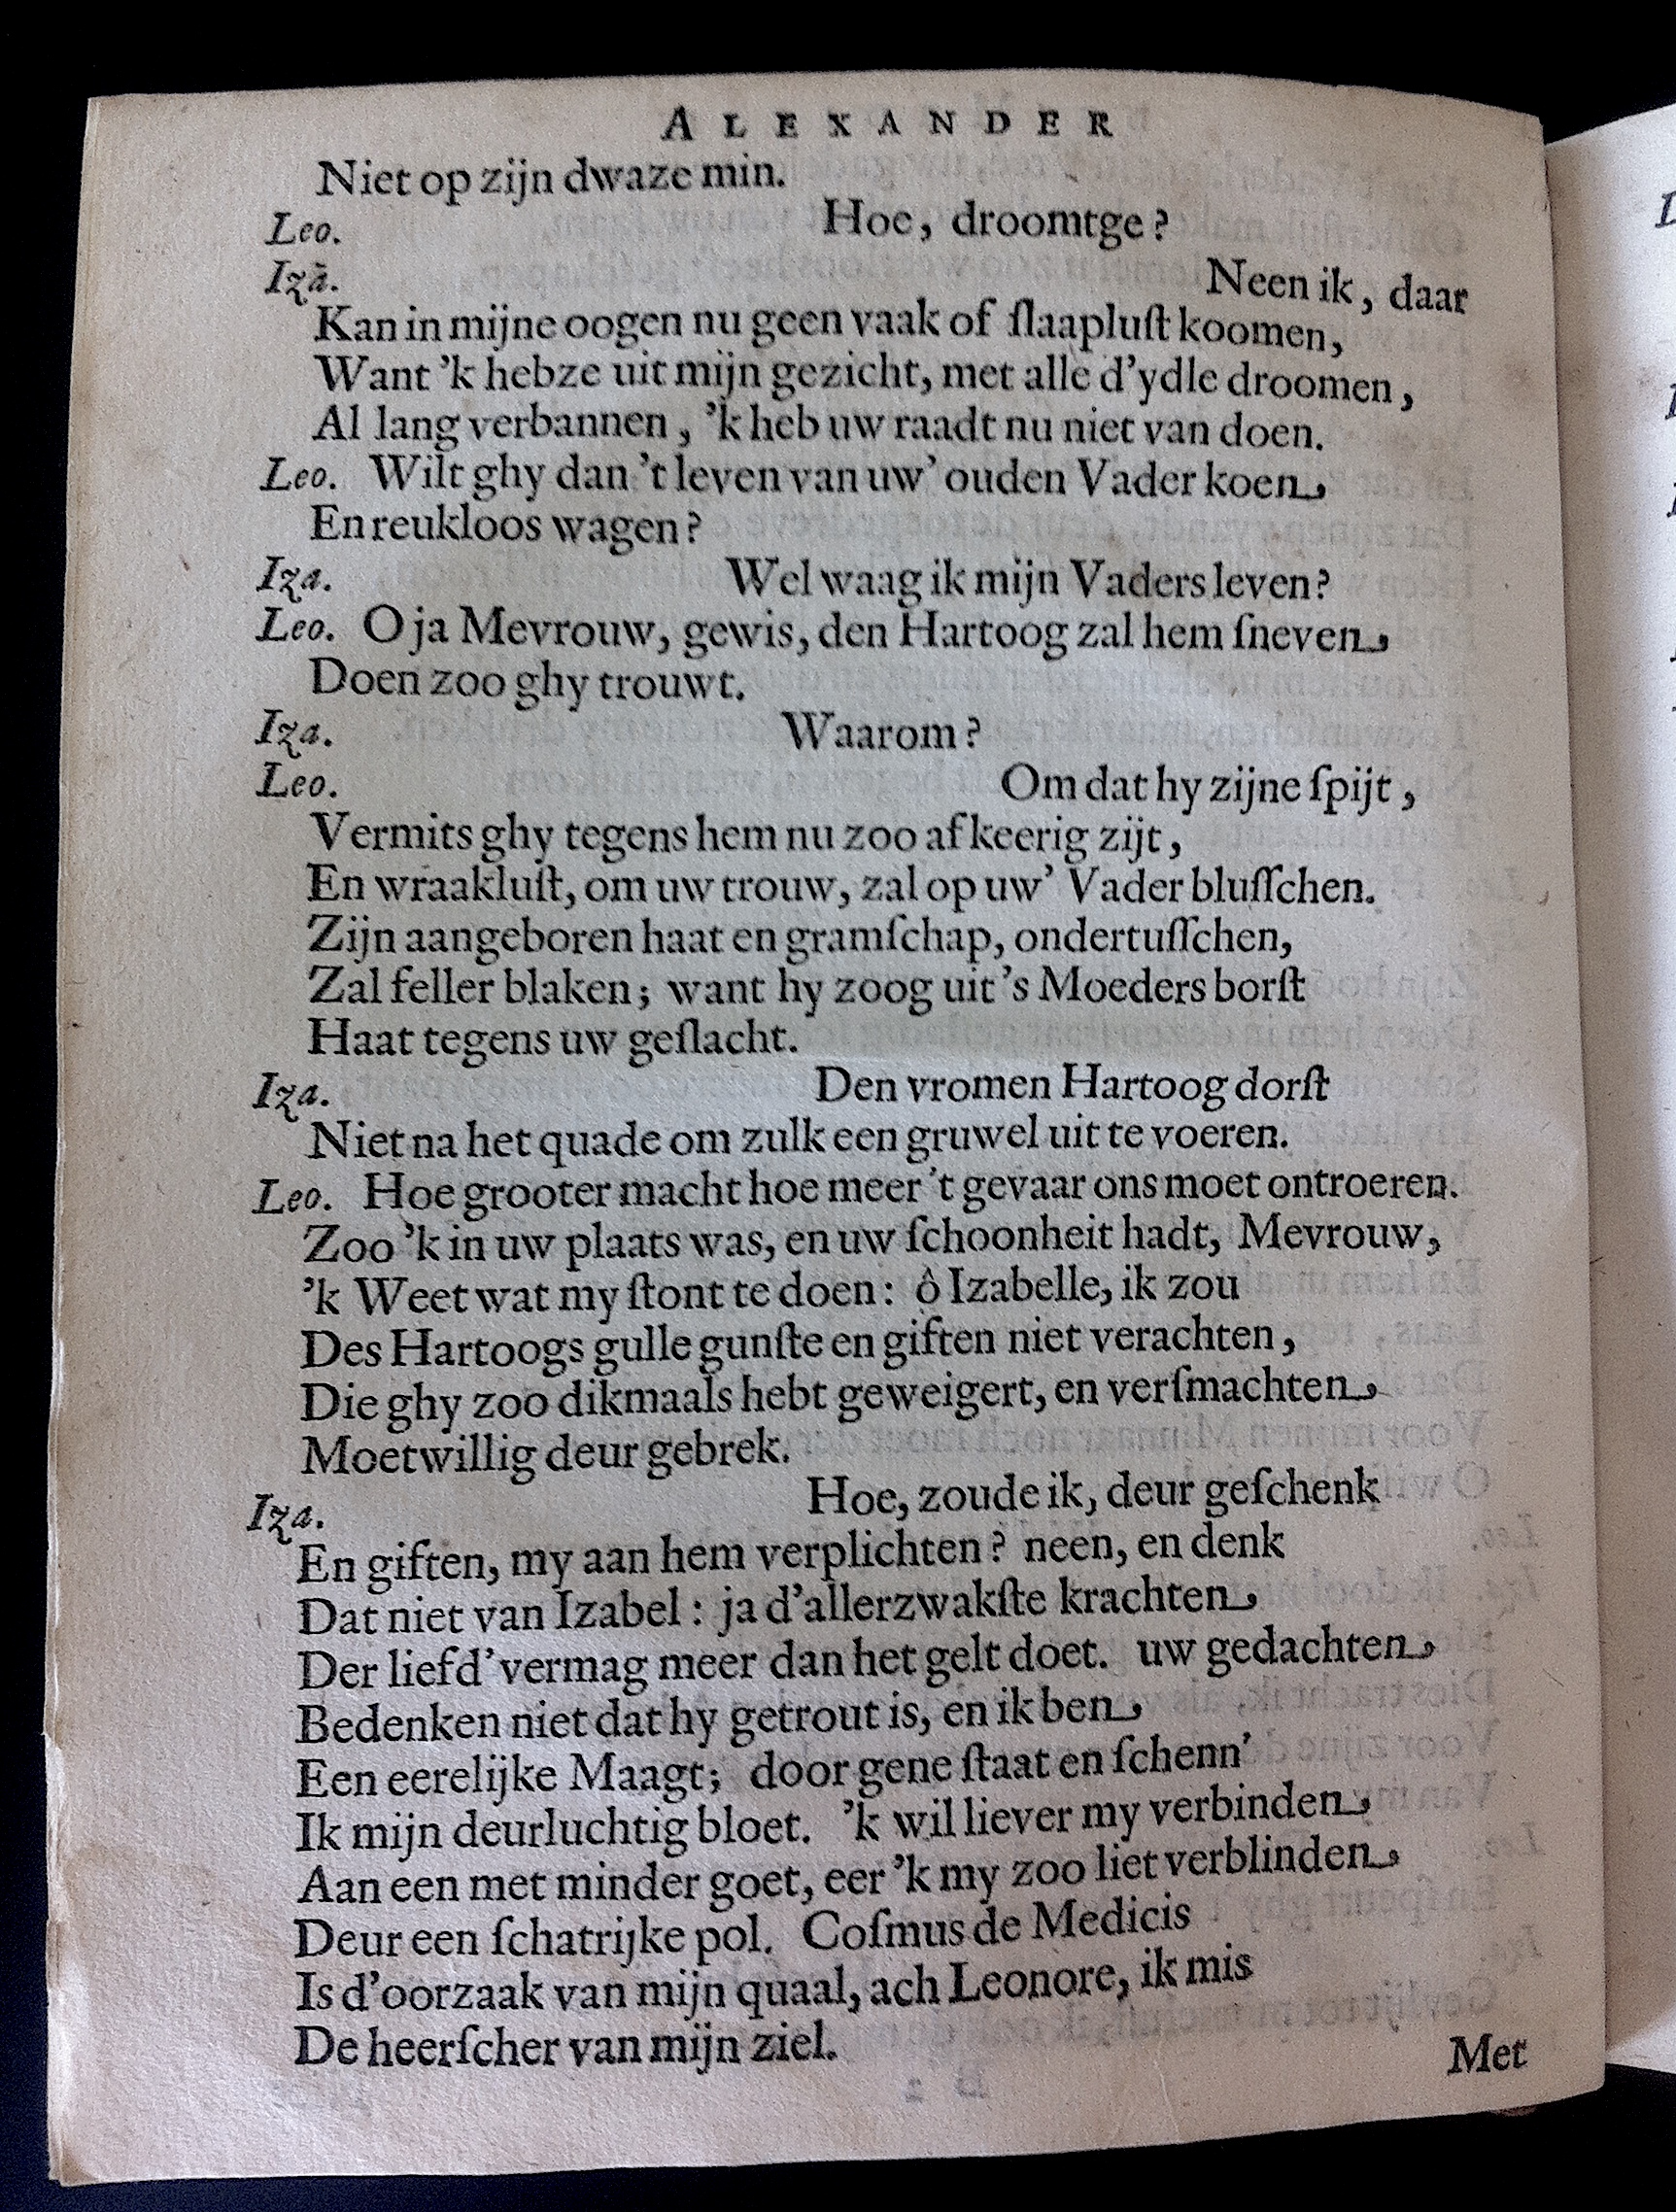 ALEXANDER
Niet op zijn dwaze min.
Leo. Hoe, droomtge?
Iza. Neen ik, daar
Kan in mijne oogen nu geen vaak of ſlaapluſt koomen,
Want 'k hebze uit mijn gezicht, met alle d'ydle droomen,
Al lang verbannen, 'k heb uw raadt nu niet van doen.
Leo. Wilt ghy dan 't leven van uw' ouden Vader koen,
En reukloos wagen?
Iza. Wel waag ik mijn Vaders leven?
Leo. O ja Mevrouw, gewis, den Hartoog zal hem ſneven,
Doen zoo ghy trouwt.
Iza. Waarom?
Leo. Om dat hy zijne ſpijt,
Vermits ghy tegens hem nu zoo afkeerig zijt,
En wraakluſt, om uw trouw, zal op uw' Vader bluſſchen.
Zijn aangeboren haat en gramſchap, ondertuſſchen,
Zal feller blaken; want hy zoog uit 's Moeders borſt
Haat tegens uw geſlacht.
Iza. Den vromen Hartoog dorſt
Niet na het quade om zulk een gruwel uit te voeren.
Leo. Hoe grooter macht hoe meer 't gevaar ons moet ontroeren.
Zoo 'k in uw plaats was, en uw ſchoonheit hadt, Mevrouw,
'k Weet wat my ſtont te doen: ô Izabelle, ik zou
Des Hartoogs gulle gunſte en giften niet verachten,
Die ghy zoo dikmaals hebt geweigert, en verſmachten,
Moetwillig deur gebrek.
Iza. Hoe, zoude ik, deur geſchenk
En giften, my aan hem verplichten? neen, en denk
Dat niet van Izabel: ja d'allerzwakſte krachten,
Der liefd' vermag meer dan het gelt doet. uw gedachten,
Bedenken niet dat hy getrout is, en ik ben,
Een eerelijke Maagt; door gene ſtaat en ſchenn'
Ik mijn deurluchtig bloet. 'k wil liever my verbinden,
Aan een met minder goet, eer 'k my zoo liet verblinden,
Deur een ſchatrijke pol. Coſmus de Medicis
Is d'oorzaak van mijn quaal, ach Leonore, ik mis
De heerſcher van mijn ziel.
Met